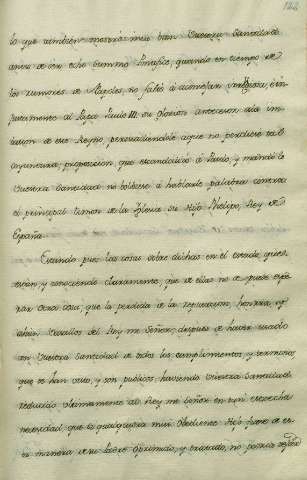 122
lo que tambien mostró mui bien Vuestra Santidad
antes de ser echo Summo Pontifice, quando en tiempo de
los rumores de Napoles, no faltó á aconsejar
al Papa Paulo III. su glorioso antecesor á la in
vasion de ese Reyno, persuadiendole á que no perdiese tal
coyuntura, proposicion que escandalizó á Paulo, y mandó le
Vuestra Santidad no bolviese á hablarle palabra contra
el principal timon de la Yglesia su Hijo Phelipe, Rey de
España.
Estando pues las cosas sobre dichas en el estado, que es
están, y conociendo claramente, que de ellas no se puede espe
rar otra cosa, que la perdida de la reputacion, honra,
Vasallos del Rey mi Señor; despues de haver usado
con Vuestra Santidad de todos los cumplimientos, y terminos
que se han visto, y son publicos, haviendo Vuestra Santidad
reducido ultimamente al Rey mi Señor en tan estrecha
necesidad, que si qualquiera mui Obediente Hijo fuese de es
ta manera de su Padre oprimido, y tratado, no podria